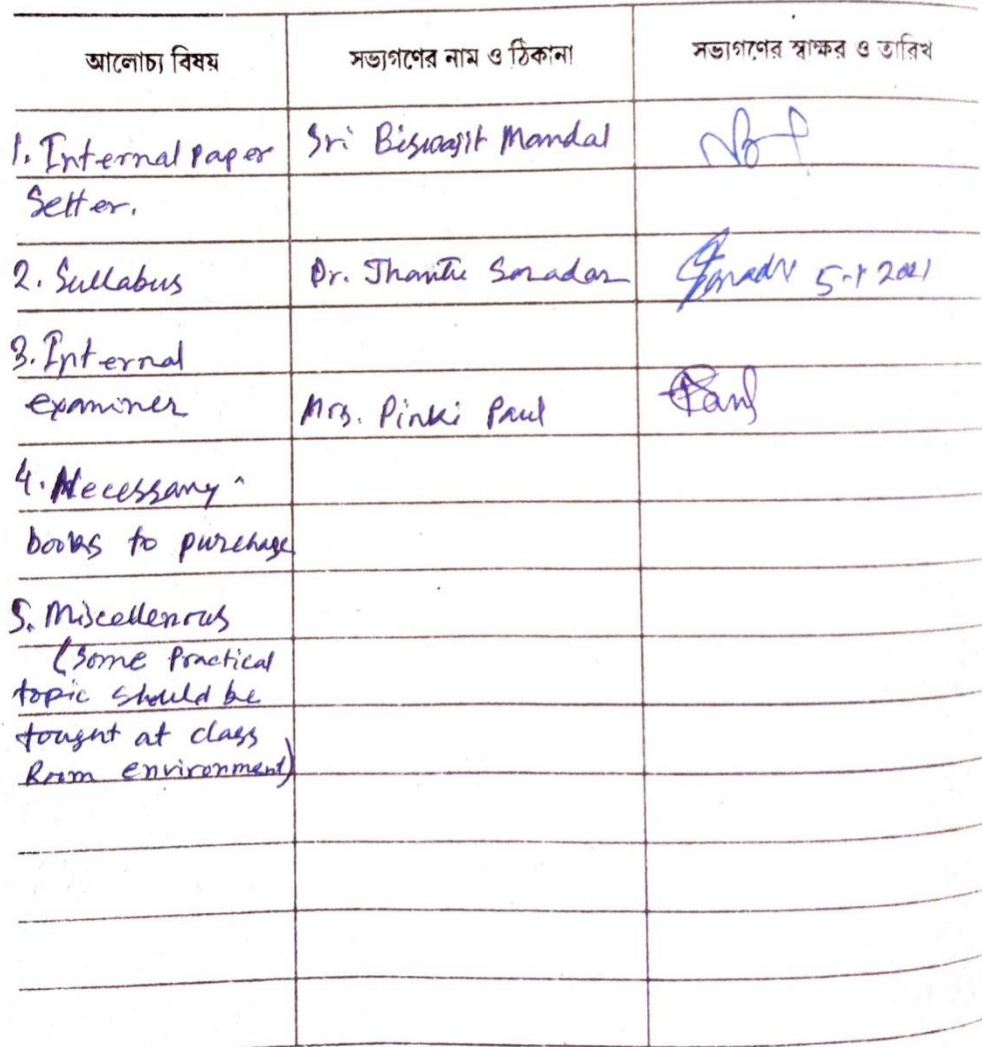 আলোচ্য বিষয় সভ্যগণের নাম ও ঠিকানা সভ্যগণের স্বাক্ষর ও তারিখ
1. Internal Paper Sri Biswajit Mandal
Setter.
2. Sullabus Dr. Jhantu 5-1 2021
3. Internal
examiner Mrs. Pinki Paul Paul
4. Necessary
books to purchage
5. Miscellenous
(Some Practical
topic should be
tought at class
Room environment)